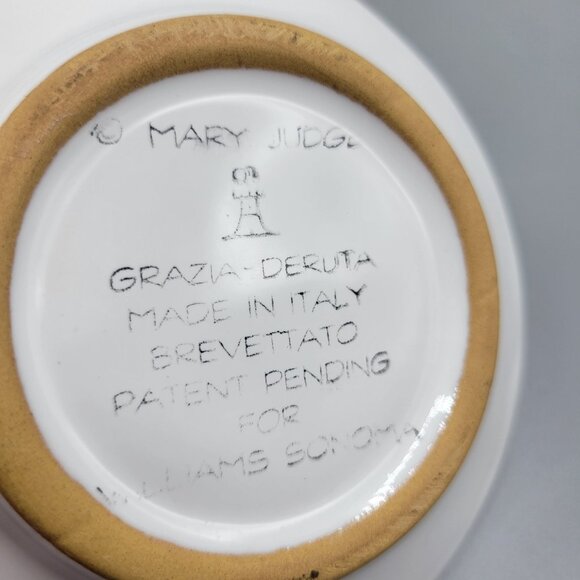 © MARY JUDGE
GRAZIA-DERUTA
MADE IN ITALY
BREVETTATO
PATENT PENDING
FOR
WILLIAMS SONOMA